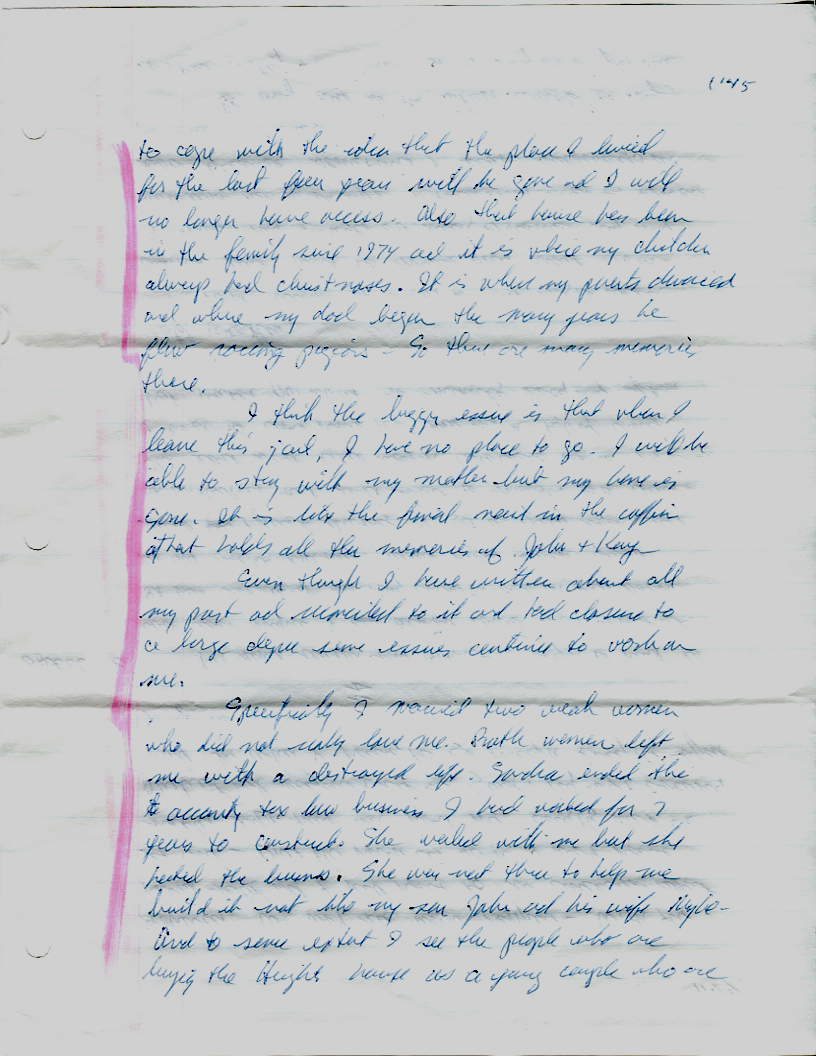 1145
to cope with the idea that the place I lived
for the last few years will be gone ad I will
no longer have access. Also that house has been
in the family since 1974 ad it is where my children
always had christmases. It is where my parents divorced
ad where my dad began the many years he
flew racing pigeons - So there are many memories
there.
I think the biggy essue is that when I
leave this jail, I have no place to go. I will be
able to stay with my mother but my home is
gone. It is like the final nail in the coffin
that holds all the memories of John + Kay
Even though I have written about all
my past ad ad had closure to
a large degree some essues continue to work on
me.
Specifically I married two weak women
who did not really love me. Both women left
me with a destroyed life. Sandra ended the
accounty tax law business I had worked for 7
years to construct. She worked with me but she
hated the business. She was not there to help me
build it not like my son John ad his wife
And to some extent I see the people who are
buying the Heights house as a young couple who are